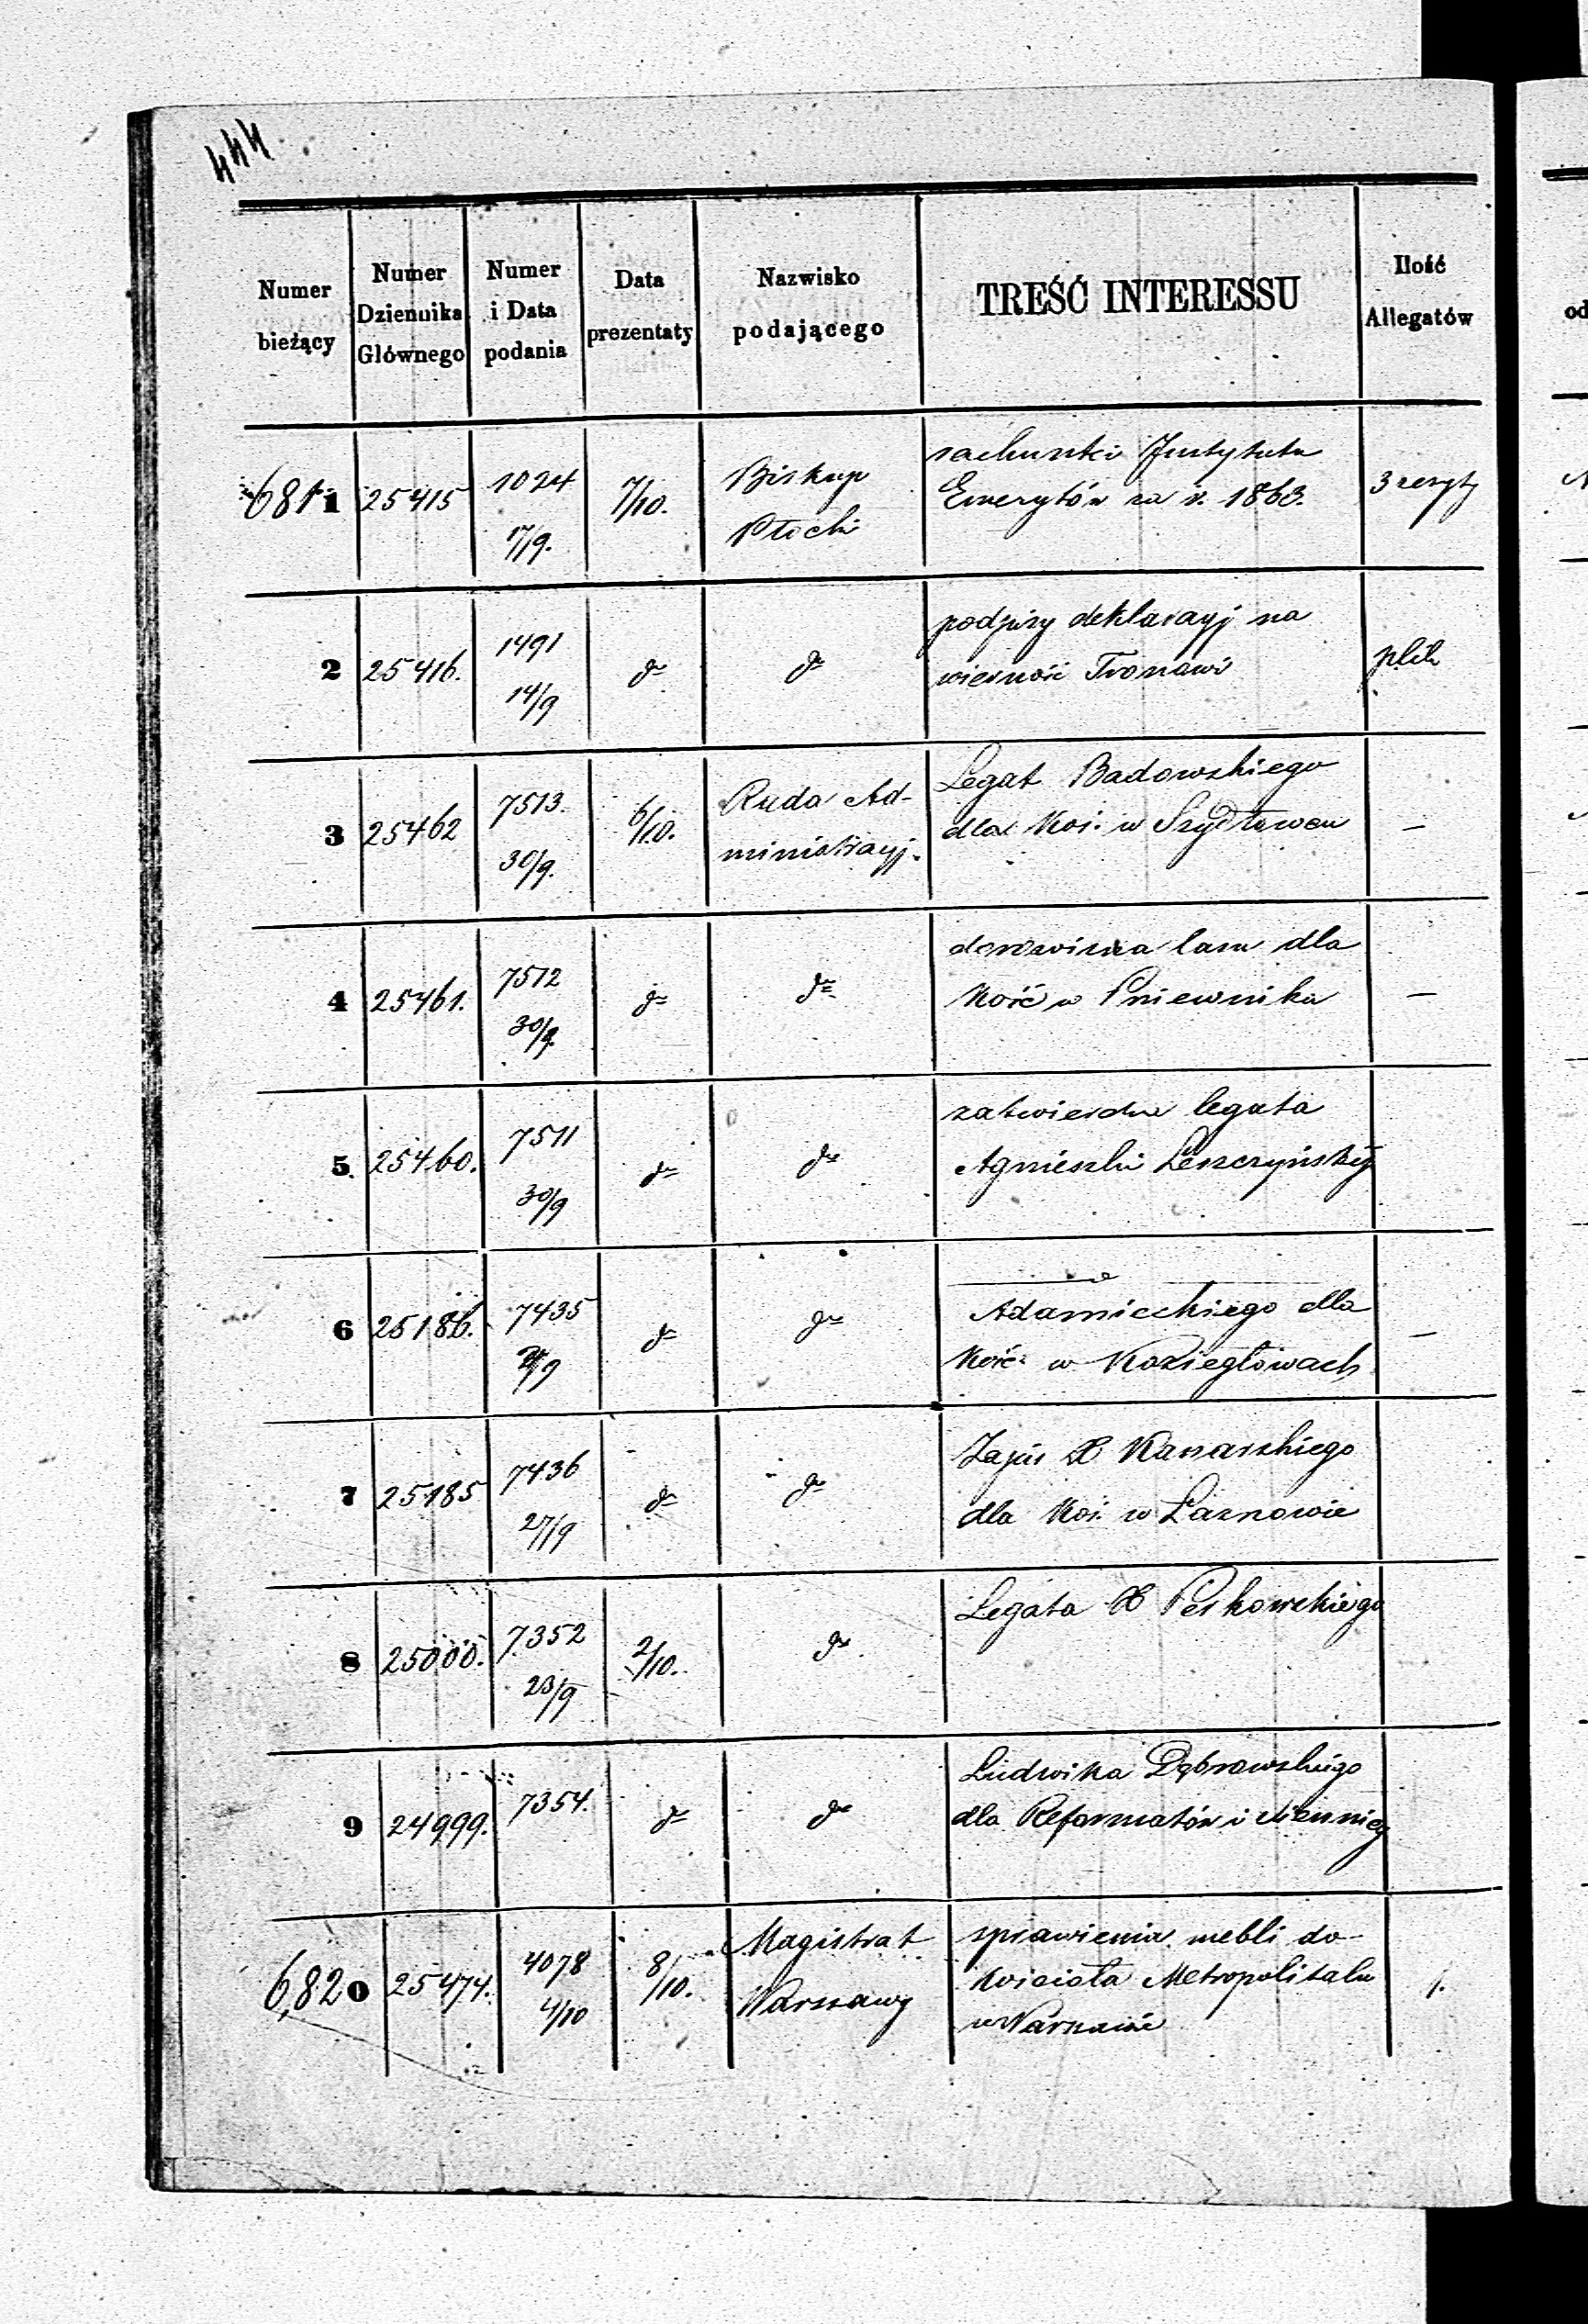 444
Numer bieżący
Numer Dziennika Głównego
Numer i Data podania
Data prezentaty
Nazwisko podającego
TREŚĆ INTERESSU
Ilość Allegatów
6811
25415
1024
17/9.
7/10.
Biskup
Płocki
rachunki Instytutu
Emerytów za r. 1863.
3 zeszyty
2
25416.
1491
14/9
do
do
podpisy deklaracyj na
wierność Tronowi
plik
3
25462
7513
30/9.
6/10.
Rada Ad-
ministracyj.
Legat Badowskiego
dla Koś. w Szydłowcu
—
4
25461.
7512
30/9.
do
do
darowizna lasu dla
Kość w Pniewniku
—
5
25460.
7511
30/9
do
do
zatwierdze legata
Agnieszki Leszczyńskiej
6
25186.
7435
/9
do
do
Adamieckiego dla
Kość: w Koziegłowach
—
7
25185
7436
27/9
do
do
Zapis X Kanarskiego
dla Koś. w Łaznowie
8
25000.
7352
23/9
2/10.
do
Legata X Perkowskiego
9
24999.
7354.
do
do
Ludwika Dąbrowskiego
dla Reformatów i
6,820
25474.
4078
4/10
8/10.
Magistrat
Warszawy
sprawienia mebli do
Kościoła Metropolitaln
w Warszawie
1.
od